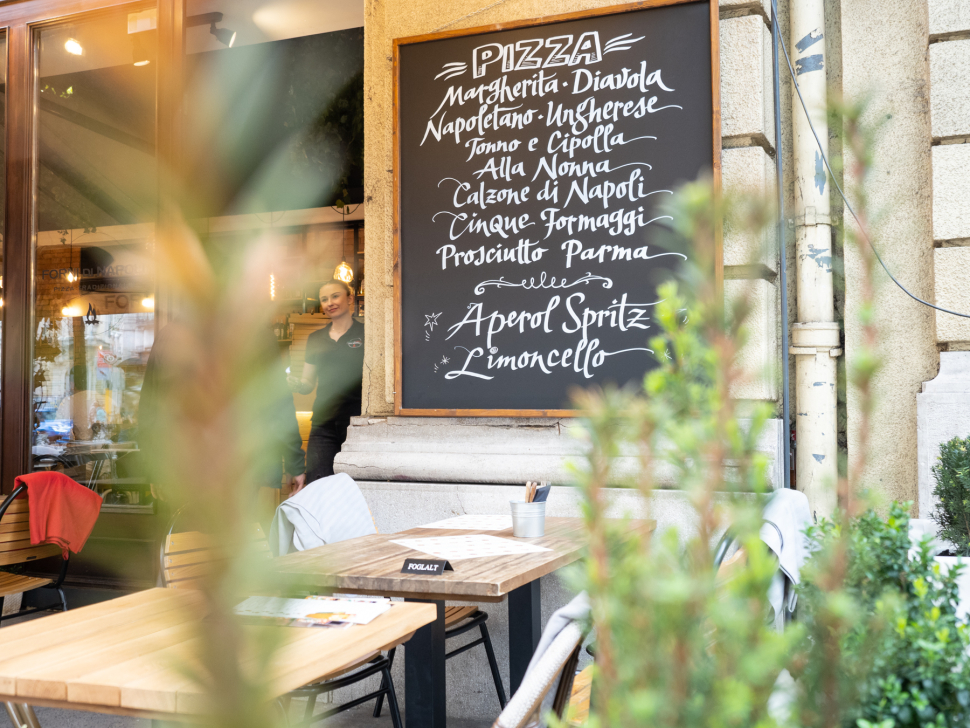 PIZZA
Margherita · Diavola
Napoletano · Ungherese
Tonno e Cipolla
Alla Nonna
Calzone di Napoli
Cinque Formaggi
Prosciutto Parma
Aperol Spritz
Limoncello
FOGLALT